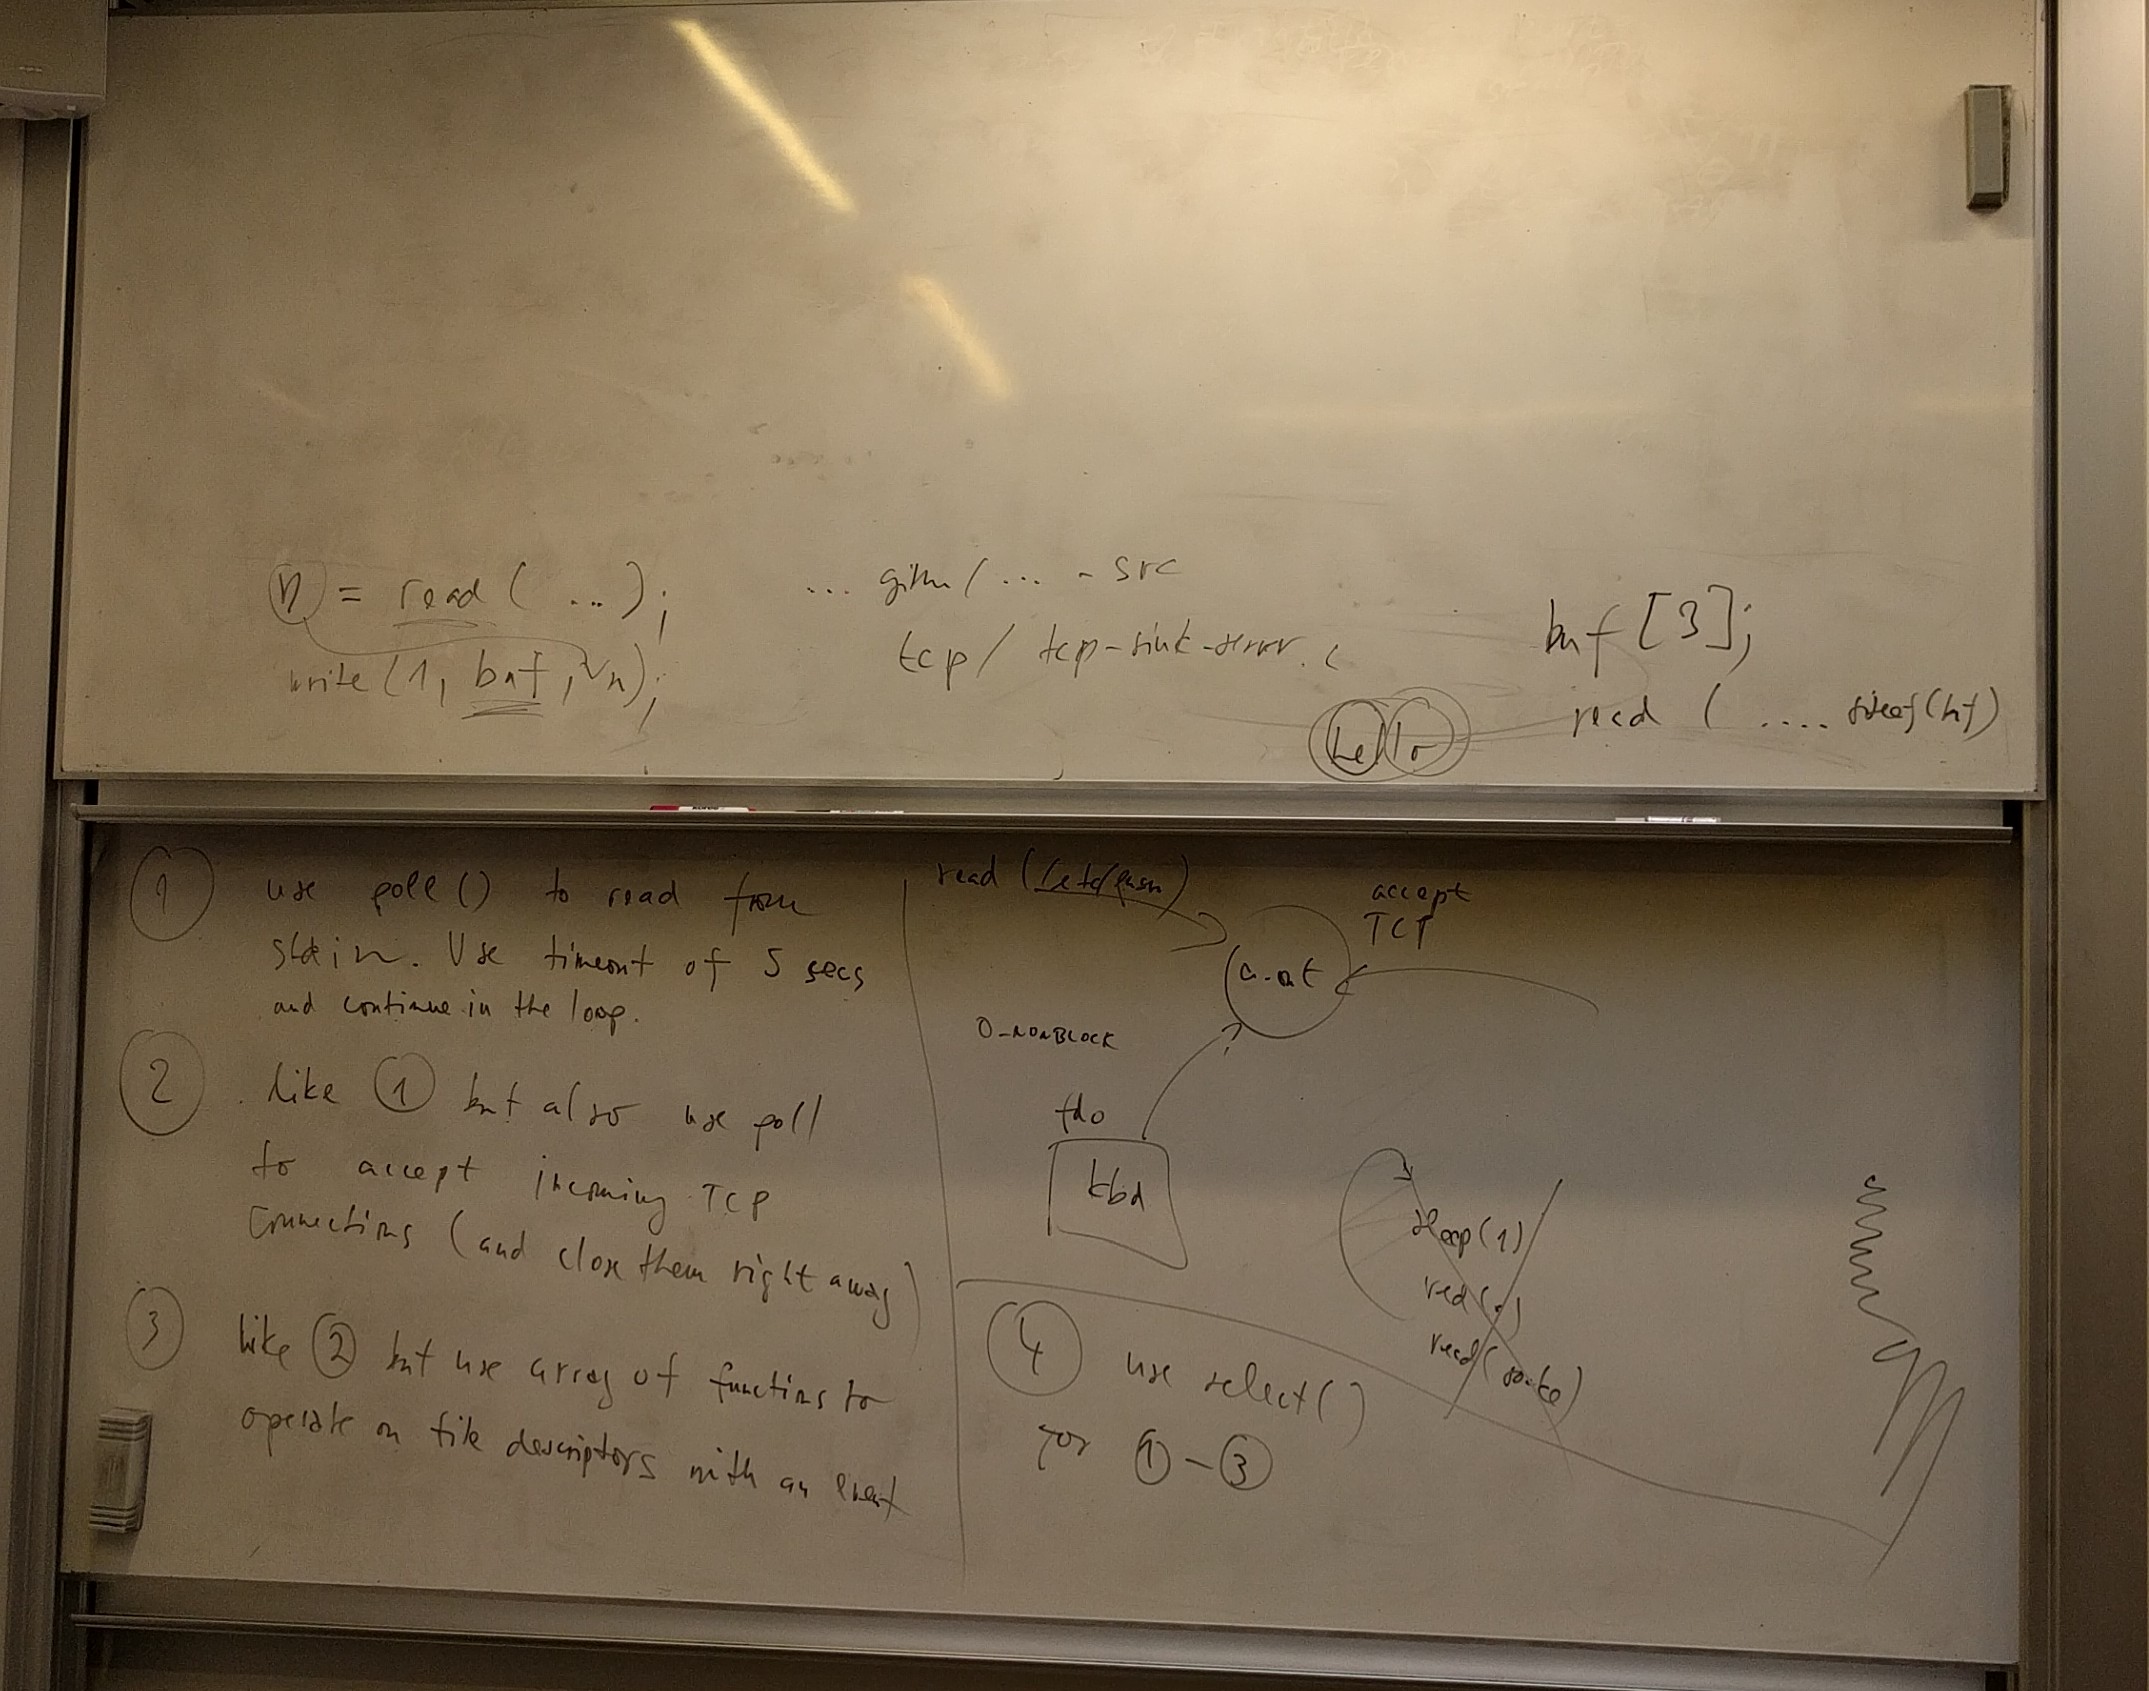 n = read ( ... );
write (1, buf, n);
... / ... - src
tcp / tcp-sink-server. c
buf [3];
read ( .... sizeof(buf)
Hello
1 use poll () to read from
stdin. Use timeout of 5 secs
and continue in the loop.
2 like 1 but also use poll
to accept incoming TCP
connections (and close them right away)
3 like 2 but use array of functions to
operate on file descriptors with an event
read (
accept
TCP
a.out
O_NONBLOCK
fd 0
kbd
sleep(1)
read(
read(
4 use select()
for 1 - 3